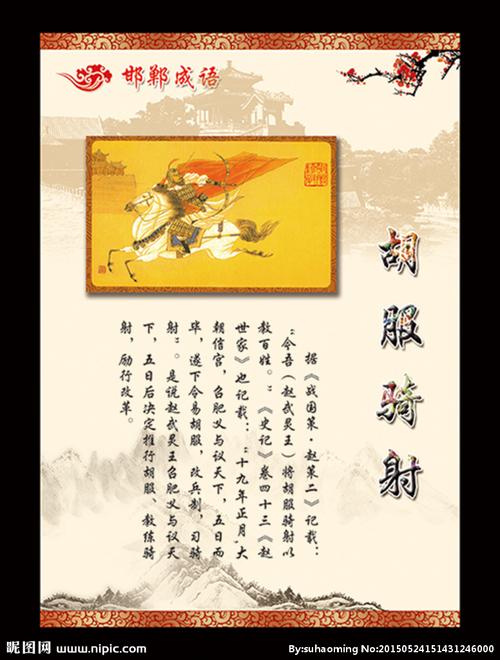 邯郸成语
胡服骑射
据《战国策·赵策二》记载：
“今吾（赵武灵王）将胡服骑射以
教百姓。”《史记》卷四十三《赵
世家》也记载：“十九年正月，大
朝信宫，召肥义与议天下，五日而
毕，遂下令易胡服，改兵制，习骑
射”。是说赵武灵王召肥义与议天
下，五日后决定推行胡服，教练骑
射，励行改革。
昵图网 www.nipic.com
By:suhaoming No:20150524151431246000